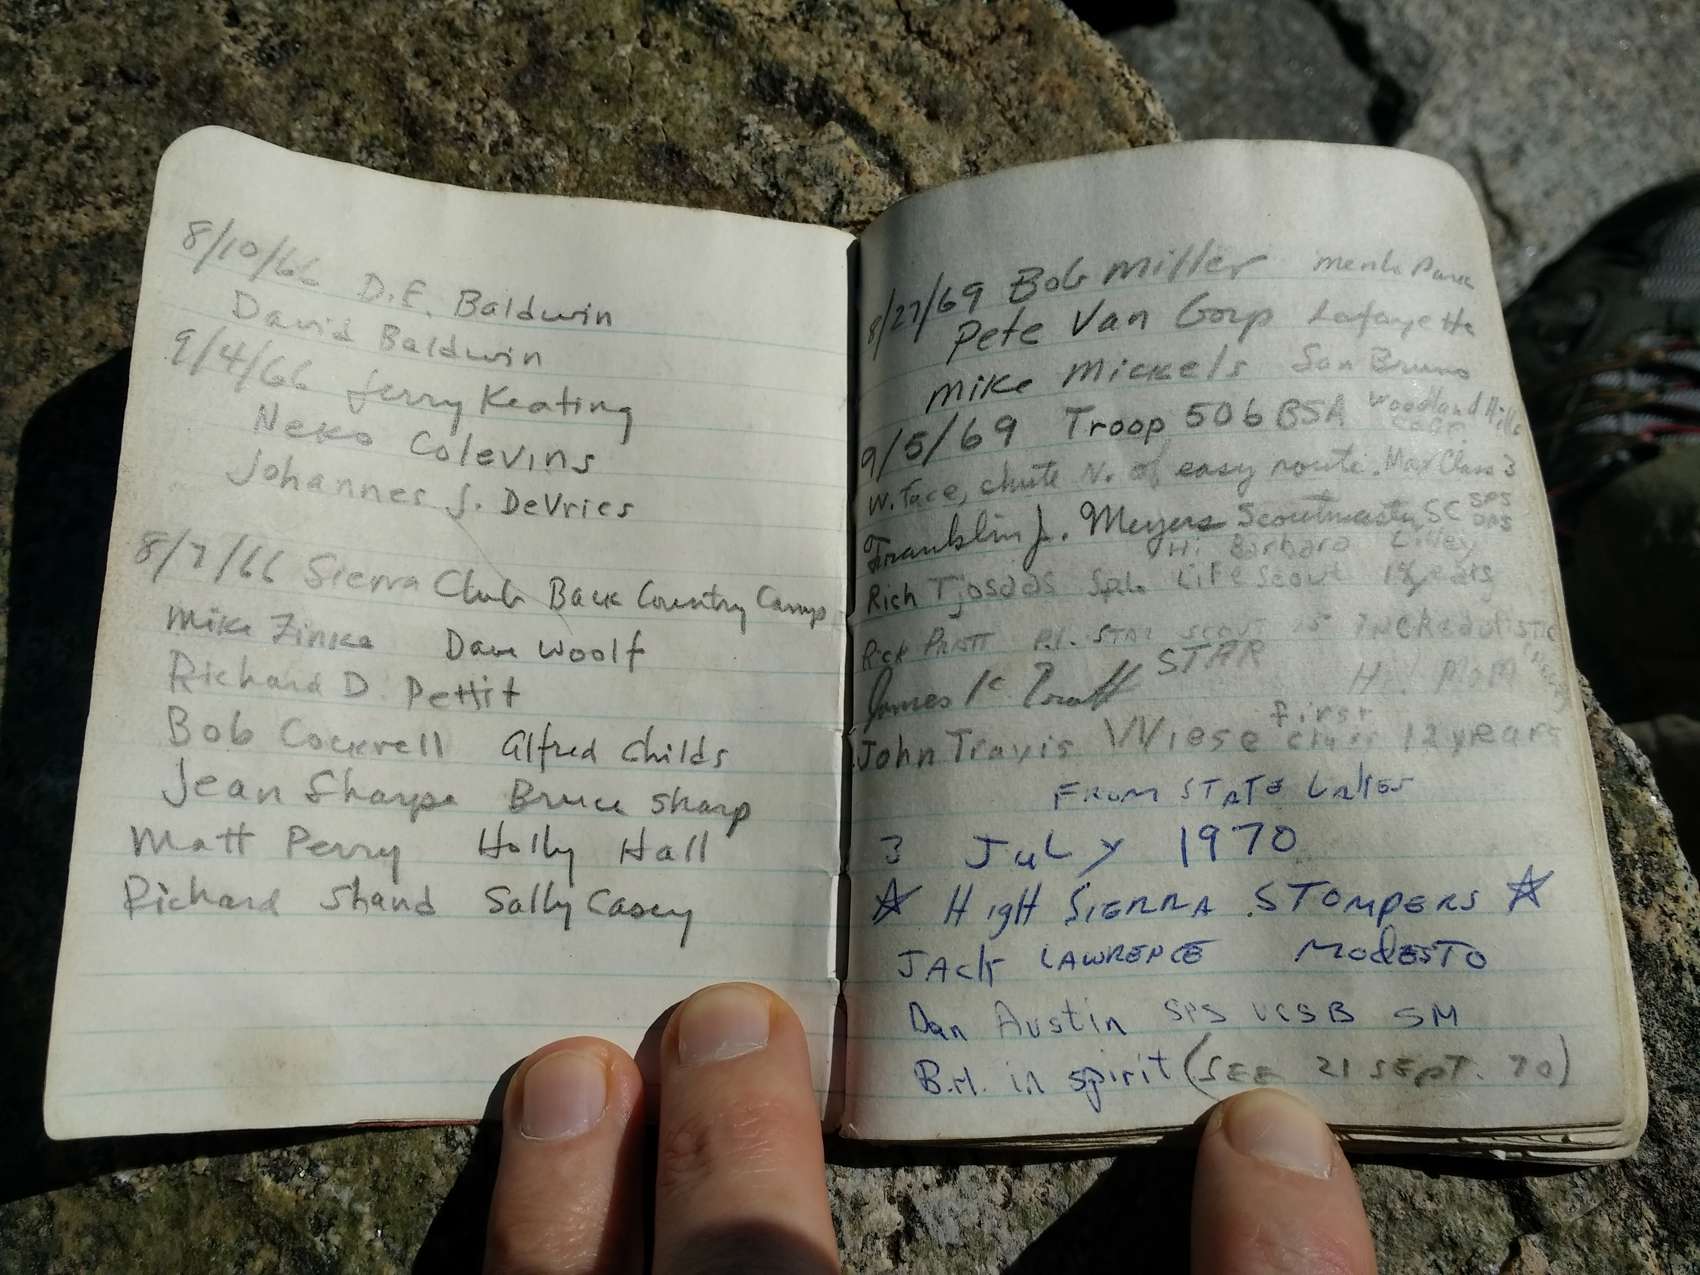 8/10/66 D.E. Baldwin
David Baldwin
9/4/66 Jerry Keating
Neko Colevins
Johannes J. DeVries
8/7/66 Sierra Club Back Country Camp
Mike Zinke Dave Woolf
Richard D. Pettit
Bob Cockrell Alfred Childs
Jean Sharpe Bruce Sharp
Matt Perry Holly Hall
Richard Shand Sally Casey
8/27/69 Bob Miller Menlo Park
Pete Van Gorp Lafayette
Mike Mickels San Bruno
9/5/69 Troop 506 BSA Woodland Hills
W. Face, chute N. of easy route. Max Class 3
Franklin J. Meyers Scoutmaster SC SPS
Hi Barbara Lilley
Rich Life Scout years
STAR SCOUT IS
James K. STAR Hi! MOM
John Travis Wiese first class 12 years
FROM STATE LAKES
3 JULY 1970
☆ HIGH SIERRA STOMPERS ☆
JACK LAWRENCE MODESTO
Dan Austin SPS UCSB SM
B.H. in spirit (SEE 21 SEPT. 70)